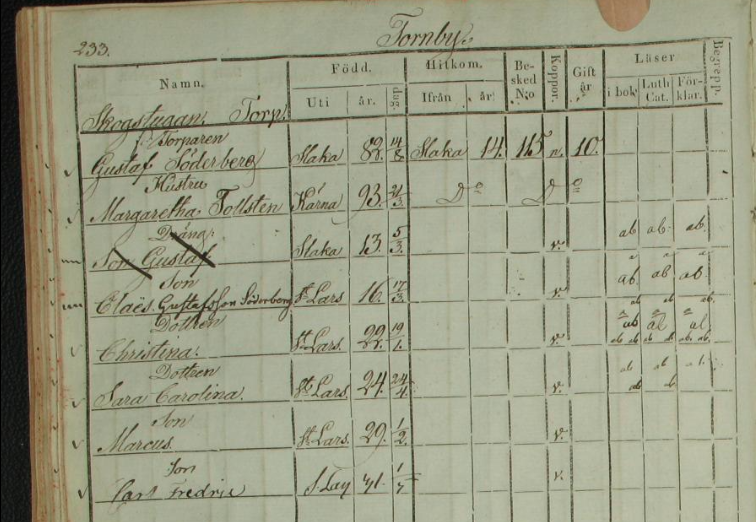 233. Tornby.
Namn. Född. Hitkom. Be-sked N:o Koppor. Gift år Läser Begrepp.
Uti år. dag. Ifrån år. i bok Luth Cat. För-klar.
Skogstugan Torp.
Torparen
Gustaf Söderberg Slaka 82. 14/8 Slaka 14. 165 n. 10.
Hustru
Margaretha Tollsten Kärna 93. D:o D:o
Dräng.
Son Gustaf Slaka 13. 5/3. v. ab ab. ab.
Son
Claës. Gustafsson Söderberg St. Lars 16. 17/3. v. ab ab ab.
Dottren
Christina. St. Lars. 22. 19/1. v. ab al al
Dotteen
Sara Carolina. St. Lars. 24. 24/4. v.
Son
Marcus. St. Lars. 29. 1/2. v.
Son
Carl Fredric v.